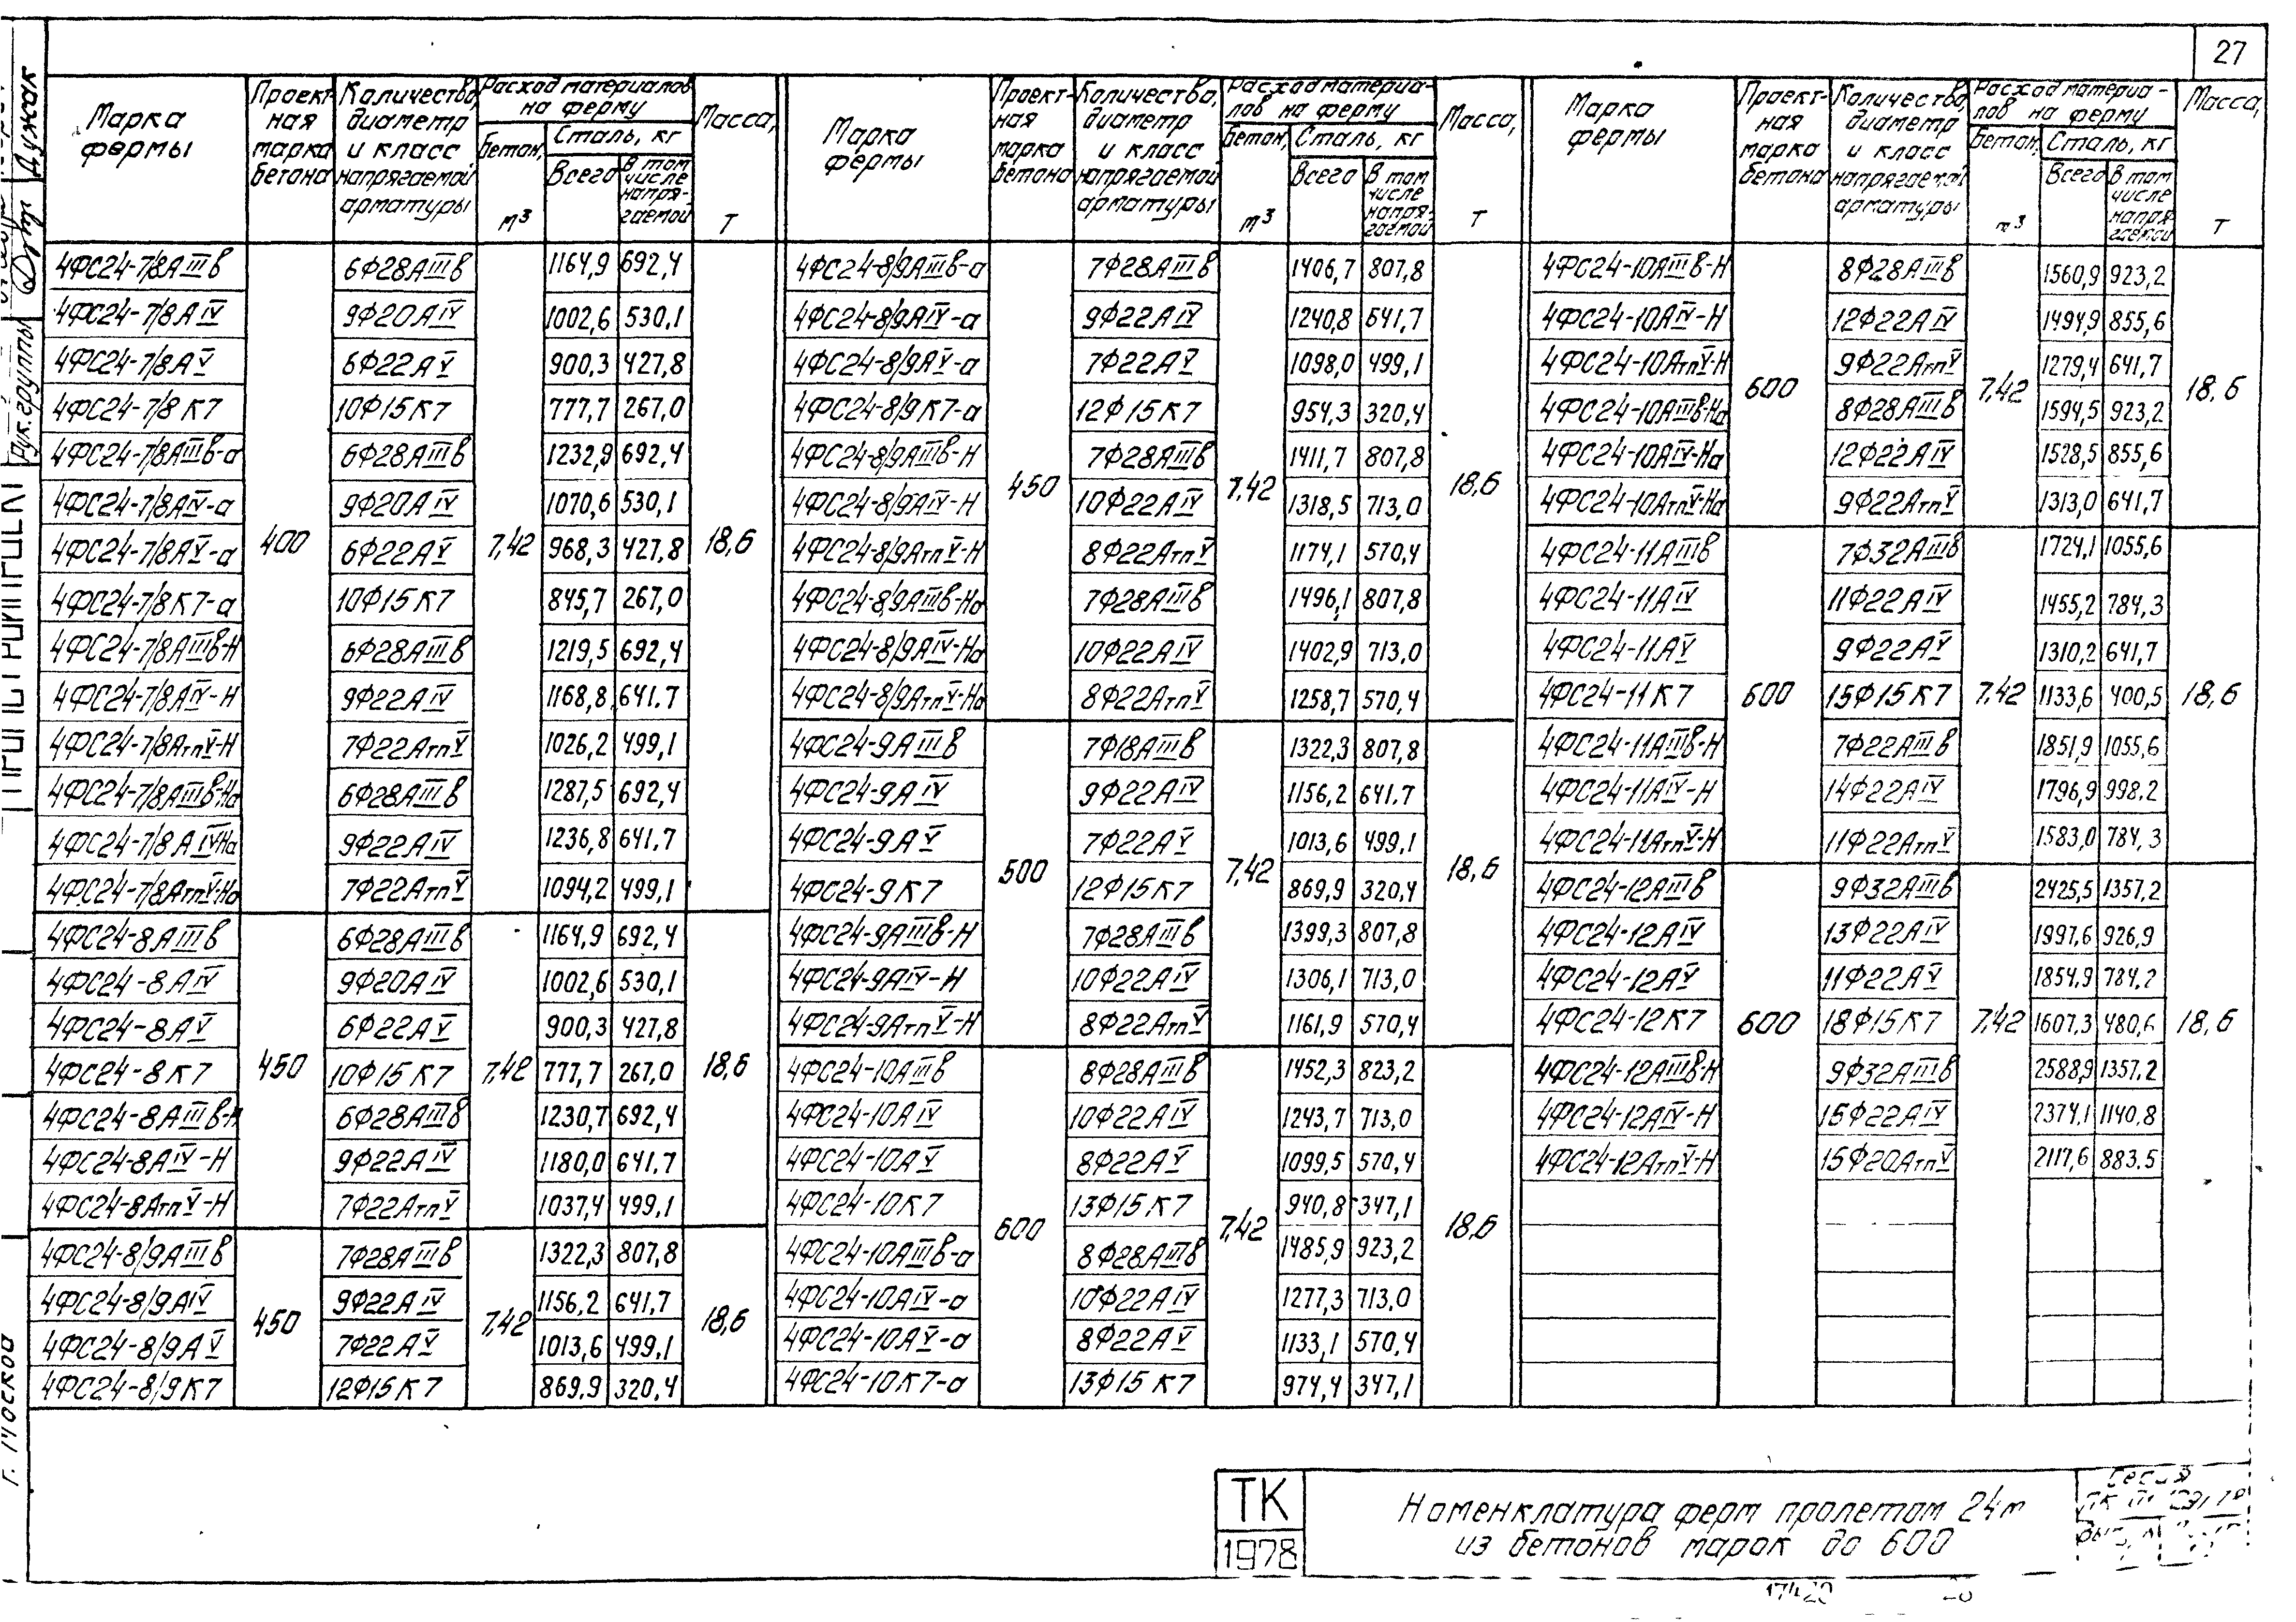 27
Марка фермы | Проектная марка бетона | Количество, диаметр и класс напрягаемой арматуры | Расход материалов на ферму | Бетон, м³ | Сталь, кг | Всего | В том числе напрягаемой | Масса, т
4ФС24-7/8АIIIв | 400 | 6Ф28АIIIв | 7,42 | 1164,9 | 692,4 | 18,6
4ФС24-7/8АIV | 9Ф20АIV | 1002,6 | 530,1
4ФС24-7/8АV | 6Ф22АV | 900,3 | 427,8
4ФС24-7/8К7 | 10Ф15К7 | 777,7 | 267,0
4ФС24-7/8АIIIв-а | 6Ф28АIIIв | 1232,9 | 692,4
4ФС24-7/8АIV-а | 9Ф20АIV | 1070,6 | 530,1
4ФС24-7/8АV-а | 6Ф22АV | 968,3 | 427,8
4ФС24-7/8К7-а | 10Ф15К7 | 845,7 | 267,0
4ФС24-7/8АIIIв-Н | 6Ф28АIIIв | 1219,5 | 692,4
4ФС24-7/8АIV-Н | 9Ф22АIV | 1168,8 | 641.7
4ФС24-7/8АтпV-Н | 7Ф22АтпV | 1026,2 | 499,1
4ФС24-7/8АIIIв-На | 6Ф28АIIIв | 1287,5 | 692,4
4ФС24-7/8АIV-На | 9Ф22АIV | 1236,8 | 641,7
4ФС24-7/8АтпV-На | 7Ф22АтпV | 1094,2 | 499,1
4ФС24-8АIIIв | 450 | 6Ф28АIIIв | 7,42 | 1164,9 | 692,4 | 18,6
4ФС24-8АIV | 9Ф20АIV | 1002,6 | 530,1
4ФС24-8АV | 6Ф22АV | 900,3 | 427,8
4ФС24-8К7 | 10Ф15К7 | 777,7 | 267,0
4ФС24-8АIIIв-Н | 6Ф28АIIIв | 1230,7 | 692,4
4ФС24-8АIV-Н | 9Ф22АIV | 1180,0 | 641,7
4ФС24-8АтпV-Н | 7Ф22АтпV | 1037,4 | 499,1
4ФС24-8/9АIIIв | 450 | 7Ф28АIIIв | 7,42 | 1322,3 | 807,8 | 18,6
4ФС24-8/9АIV | 9Ф22АIV | 1156,2 | 641,7
4ФС24-8/9АV | 7Ф22АV | 1013,6 | 499,1
4ФС24-8/9К7 | 12Ф15К7 | 869,9 | 320,4
Марка фермы | Проектная марка бетона | Количество, диаметр и класс напрягаемой арматуры | Расход материалов на ферму | Бетон, м³ | Сталь, кг | Всего | В том числе напрягаемой | Масса, т
4ФС24-8/9АIIIв-а | 450 | 7Ф28АIIIв | 7,42 | 1406,7 | 807,8 | 18,6
4ФС24-8/9АIV-а | 9Ф22АIV | 1240,8 | 641,7
4ФС24-8/9АV-а | 7Ф22АV | 1098,0 | 499,1
4ФС24-8/9К7-а | 12Ф15К7 | 954,3 | 320,4
4ФС24-8/9АIIIв-Н | 7Ф28АIIIв | 1411,7 | 807,8
4ФС24-8/9АIV-Н | 10Ф22АIV | 1318,5 | 713,0
4ФС24-8/9АтпV-Н | 8Ф22АтпV | 1174,1 | 570,4
4ФС24-8/9АIIIв-На | 7Ф28АIIIв | 1496,1 | 807,8
4ФС24-8/9АIV-На | 10Ф22АIV | 1402,9 | 713,0
4ФС24-8/9АтпV-На | 8Ф22АтпV | 1258,7 | 570,4
4ФС24-9АIIIв | 500 | 7Ф18АIIIв | 7,42 | 1322,3 | 807,8 | 18,6
4ФС24-9АIV | 9Ф22АIV | 1156,2 | 641.7
4ФС24-9АV | 7Ф22АV | 1013,6 | 499,1
4ФС24-9К7 | 12Ф15К7 | 869,9 | 320,4
4ФС24-9АIIIв-Н | 7Ф28АIIIв | 1399,3 | 807,8
4ФС24-9АIV-Н | 10Ф22АIV | 1306,1 | 713,0
4ФС24-9АтпV-Н | 8Ф22АтпV | 1161,9 | 570,4
4ФС24-10АIIIв | 600 | 8Ф28АIIIв | 7,42 | 1452,3 | 823,2 | 18,6
4ФС24-10АIV | 10Ф22АIV | 1243,7 | 713,0
4ФС24-10АV | 8Ф22АV | 1099,5 | 570,4
4ФС24-10К7 | 13Ф15К7 | 940,8 | 347,1
4ФС24-10АIIIв-а | 8Ф28АIIIв | 1485,9 | 923,2
4ФС24-10АIV-а | 10Ф22АIV | 1277,3 | 713,0
4ФС24-10АV-а | 8Ф22АV | 1133,1 | 570,4
4ФС24-10К7-а | 13Ф15К7 | 974,4 | 347,1
Марка фермы | Проектная марка бетона | Количество, диаметр и класс напрягаемой арматуры | Расход материалов на ферму | Бетон, м³ | Сталь, кг | Всего | В том числе напрягаемой | Масса, т
4ФС24-10АIIIв-Н | 600 | 8Ф28АIIIв | 7,42 | 1560,9 | 923,2 | 18,6
4ФС24-10АIV-Н | 12Ф22АIV | 1494,9 | 855,6
4ФС24-10АтпV-Н | 9Ф22АтпV | 1279,4 | 641,7
4ФС24-10АIIIв-На | 8Ф28АIIIв | 1594,5 | 923,2
4ФС24-10АIV-На | 12Ф22АIV | 1528,5 | 855,6
4ФС24-10АтпV-На | 9Ф22АтпV | 1313,0 | 641,7
4ФС24-11АIIIв | 600 | 7Ф32АIIIв | 7,42 | 1724,1 | 1055,6 | 18,6
4ФС24-11АIV | 11Ф22АIV | 1455,2 | 784,3
4ФС24-11АV | 9Ф22АV | 1310,2 | 641,7
4ФС24-11К7 | 15Ф15К7 | 1133,6 | 400,5
4ФС24-11АIIIв-Н | 7Ф22АIIIв | 1851,9 | 1055,6
4ФС24-11АIV-Н | 14Ф22АIV | 1796,9 | 998.2
4ФС24-11АтпV-Н | 11Ф22АтпV | 1583,0 | 784,3
4ФС24-12АIIIв | 600 | 9Ф32АIIIв | 7,42 | 2425,5 | 1357,2 | 18,6
4ФС24-12АIV | 13Ф22АIV | 1997,6 | 926,9
4ФС24-12АV | 11Ф22АV | 1854,9 | 784,2
4ФС24-12К7 | 18Ф15К7 | 1607,3 | 480,6
4ФС24-12АIIIв-Н | 9Ф32АIIIв | 2588,9 | 1357,2
4ФС24-12АIV-Н | 16Ф22АIV | 2374,1 | 1140,8
4ФС24-12АтпV-Н | 15Ф20АтпV | 2117,6 | 883.5
Рук. группы
Дужак
г. Москва
ТК
1978
Номенклатура ферм пролетом 24м
из бетонов марок до 600
Серия